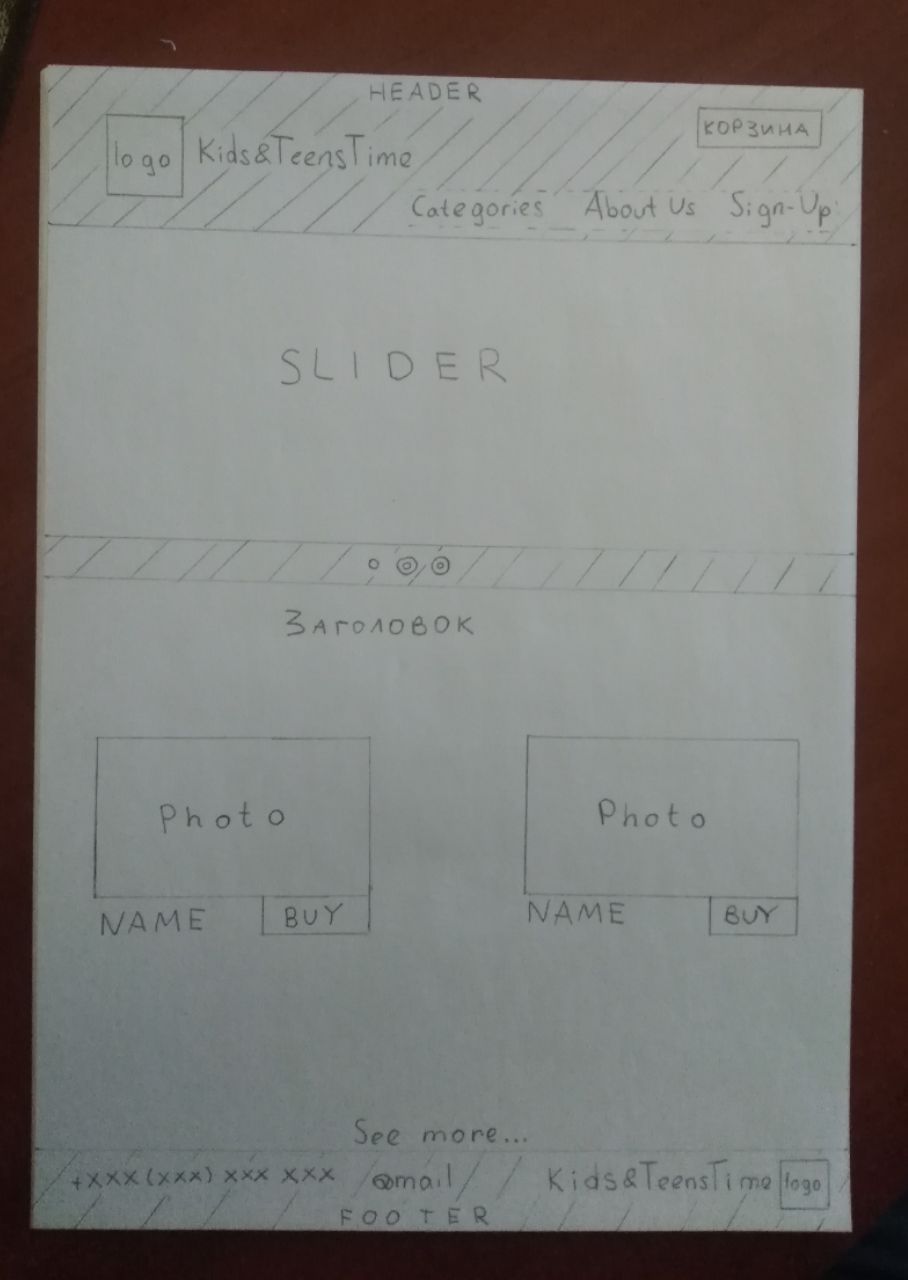 HEADER
КОРЗИНА
logo Kids&TeensTime
Categories About Us Sign-Up
SLIDER
Заголовок
Photo Photo
NAME BUY NAME BUY
See more...
+xxx(xxx) xxx xxx @mail Kids&TeensTime logo
FOOTER